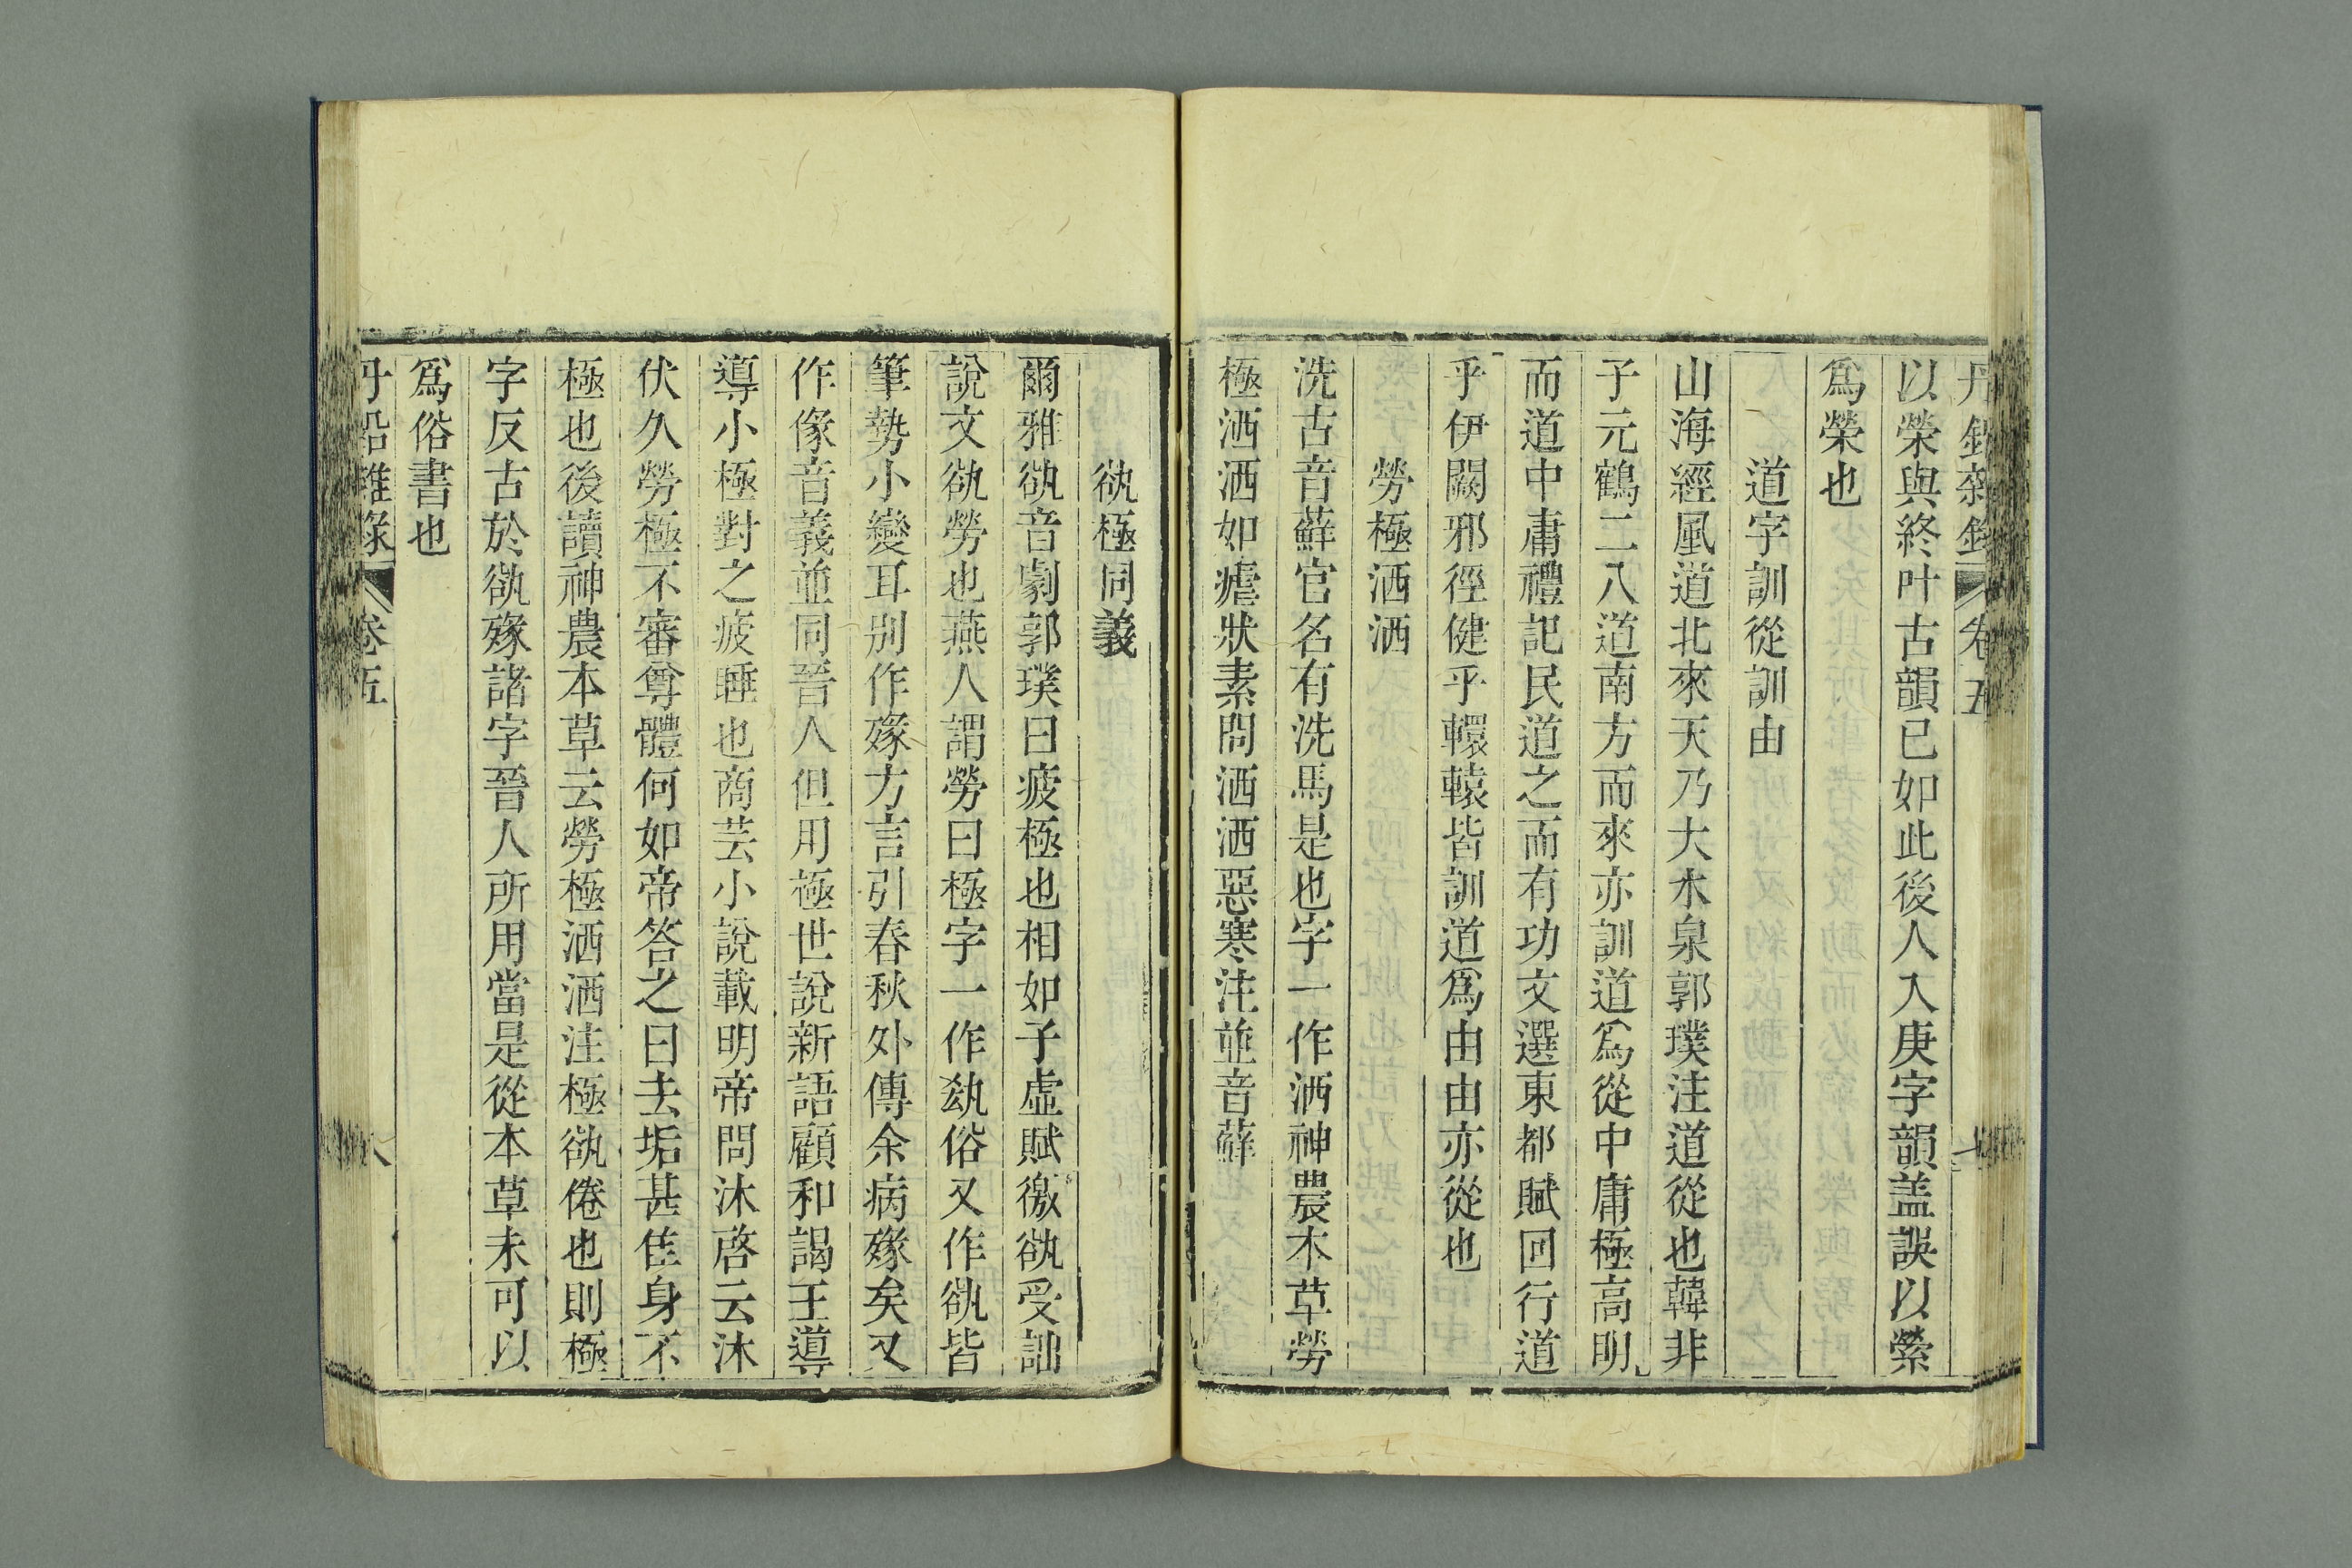 以榮與終叶古韻已如此後人入庚字韻盖誤以縈
爲榮也
道字訓從訓由
山海經風道北來天乃大水泉郭璞注道從也韓非
子元鶴二八道南方而來亦訓道爲從中庸極高明
而道中庸禮記民道之而有功文選東都賦回行道
乎伊闕邪徑健乎轘轅皆訓道爲由由亦從也
勞極洒洒
洗古音蘚官名有洗馬是也字一作洒神農本草勞
極洒洒如瘧狀素問洒洒惡寒注並音蘚
㰸極同義
爾雅㰸音劇郭璞曰疲極也相如子虛賦徼㰸受詘
說文㰸勞也燕人謂勞曰極字一作𠢇俗又作㰸皆
筆勢小變耳别作㱵方言引春秋外傳余病㱵矣又
作㑼音義並同晉人但用極世說新語顧和謁王導
導小極對之疲睡也商芸小說載明帝問沐啓云沐
伏久勞極不審尊體何如帝答之曰去垢甚佳身不
極也後讀神農本草云勞極洒洒注極㰸倦也則極
字反古於㰸㱵諸字晉人所用當是從本草未可以
爲俗書也
丹鉛雜錄 卷五 八